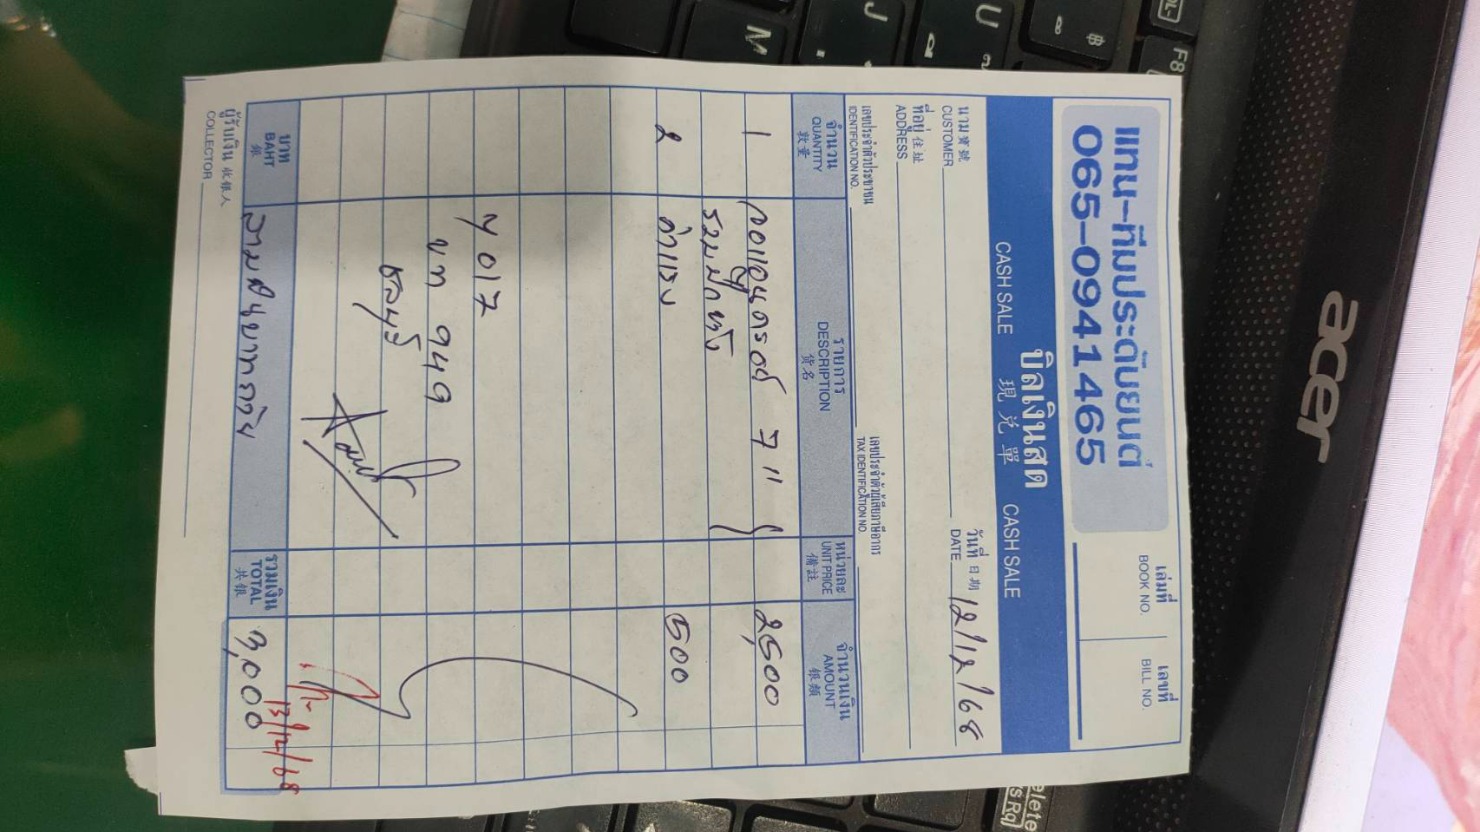 แทน-ทีมประดับยนต์
065-0941465
เล่มที่
BOOK NO.
เลขที่
BILL NO.
บิลเงินสด
CASH SALE 現兌單 CASH SALE
นาม寶號
CUSTOMER
วันที่日期
DATE 12/12/68
ที่อยู่住址
ADDRESS
เลขประจำตัวประชาชน
IDENTIFICATION NO.
เลขประจำตัวผู้เสียภาษีอากร
TAX IDENTIFICATION NO.
จำนวน
QUANTITY
數量
รายการ
DESCRIPTION
貨名
หน่วยละ
UNIT PRICE
備註
จำนวนเงิน
AMOUNT
銀額
1 จอแอนดรอย 7" 2,500
รวมปีกหลัง
2 ค่าแรง 500
4017
ขท 949
ชลบุรี
13/12/68
บาท
BAHT
銀
สามพันบาทถ้วน
รวมเงิน
TOTAL
共銀
3,000
ผู้รับเงิน收銀人
COLLECTOR
acer
F8
U
J
M
B
elete
S.Rq